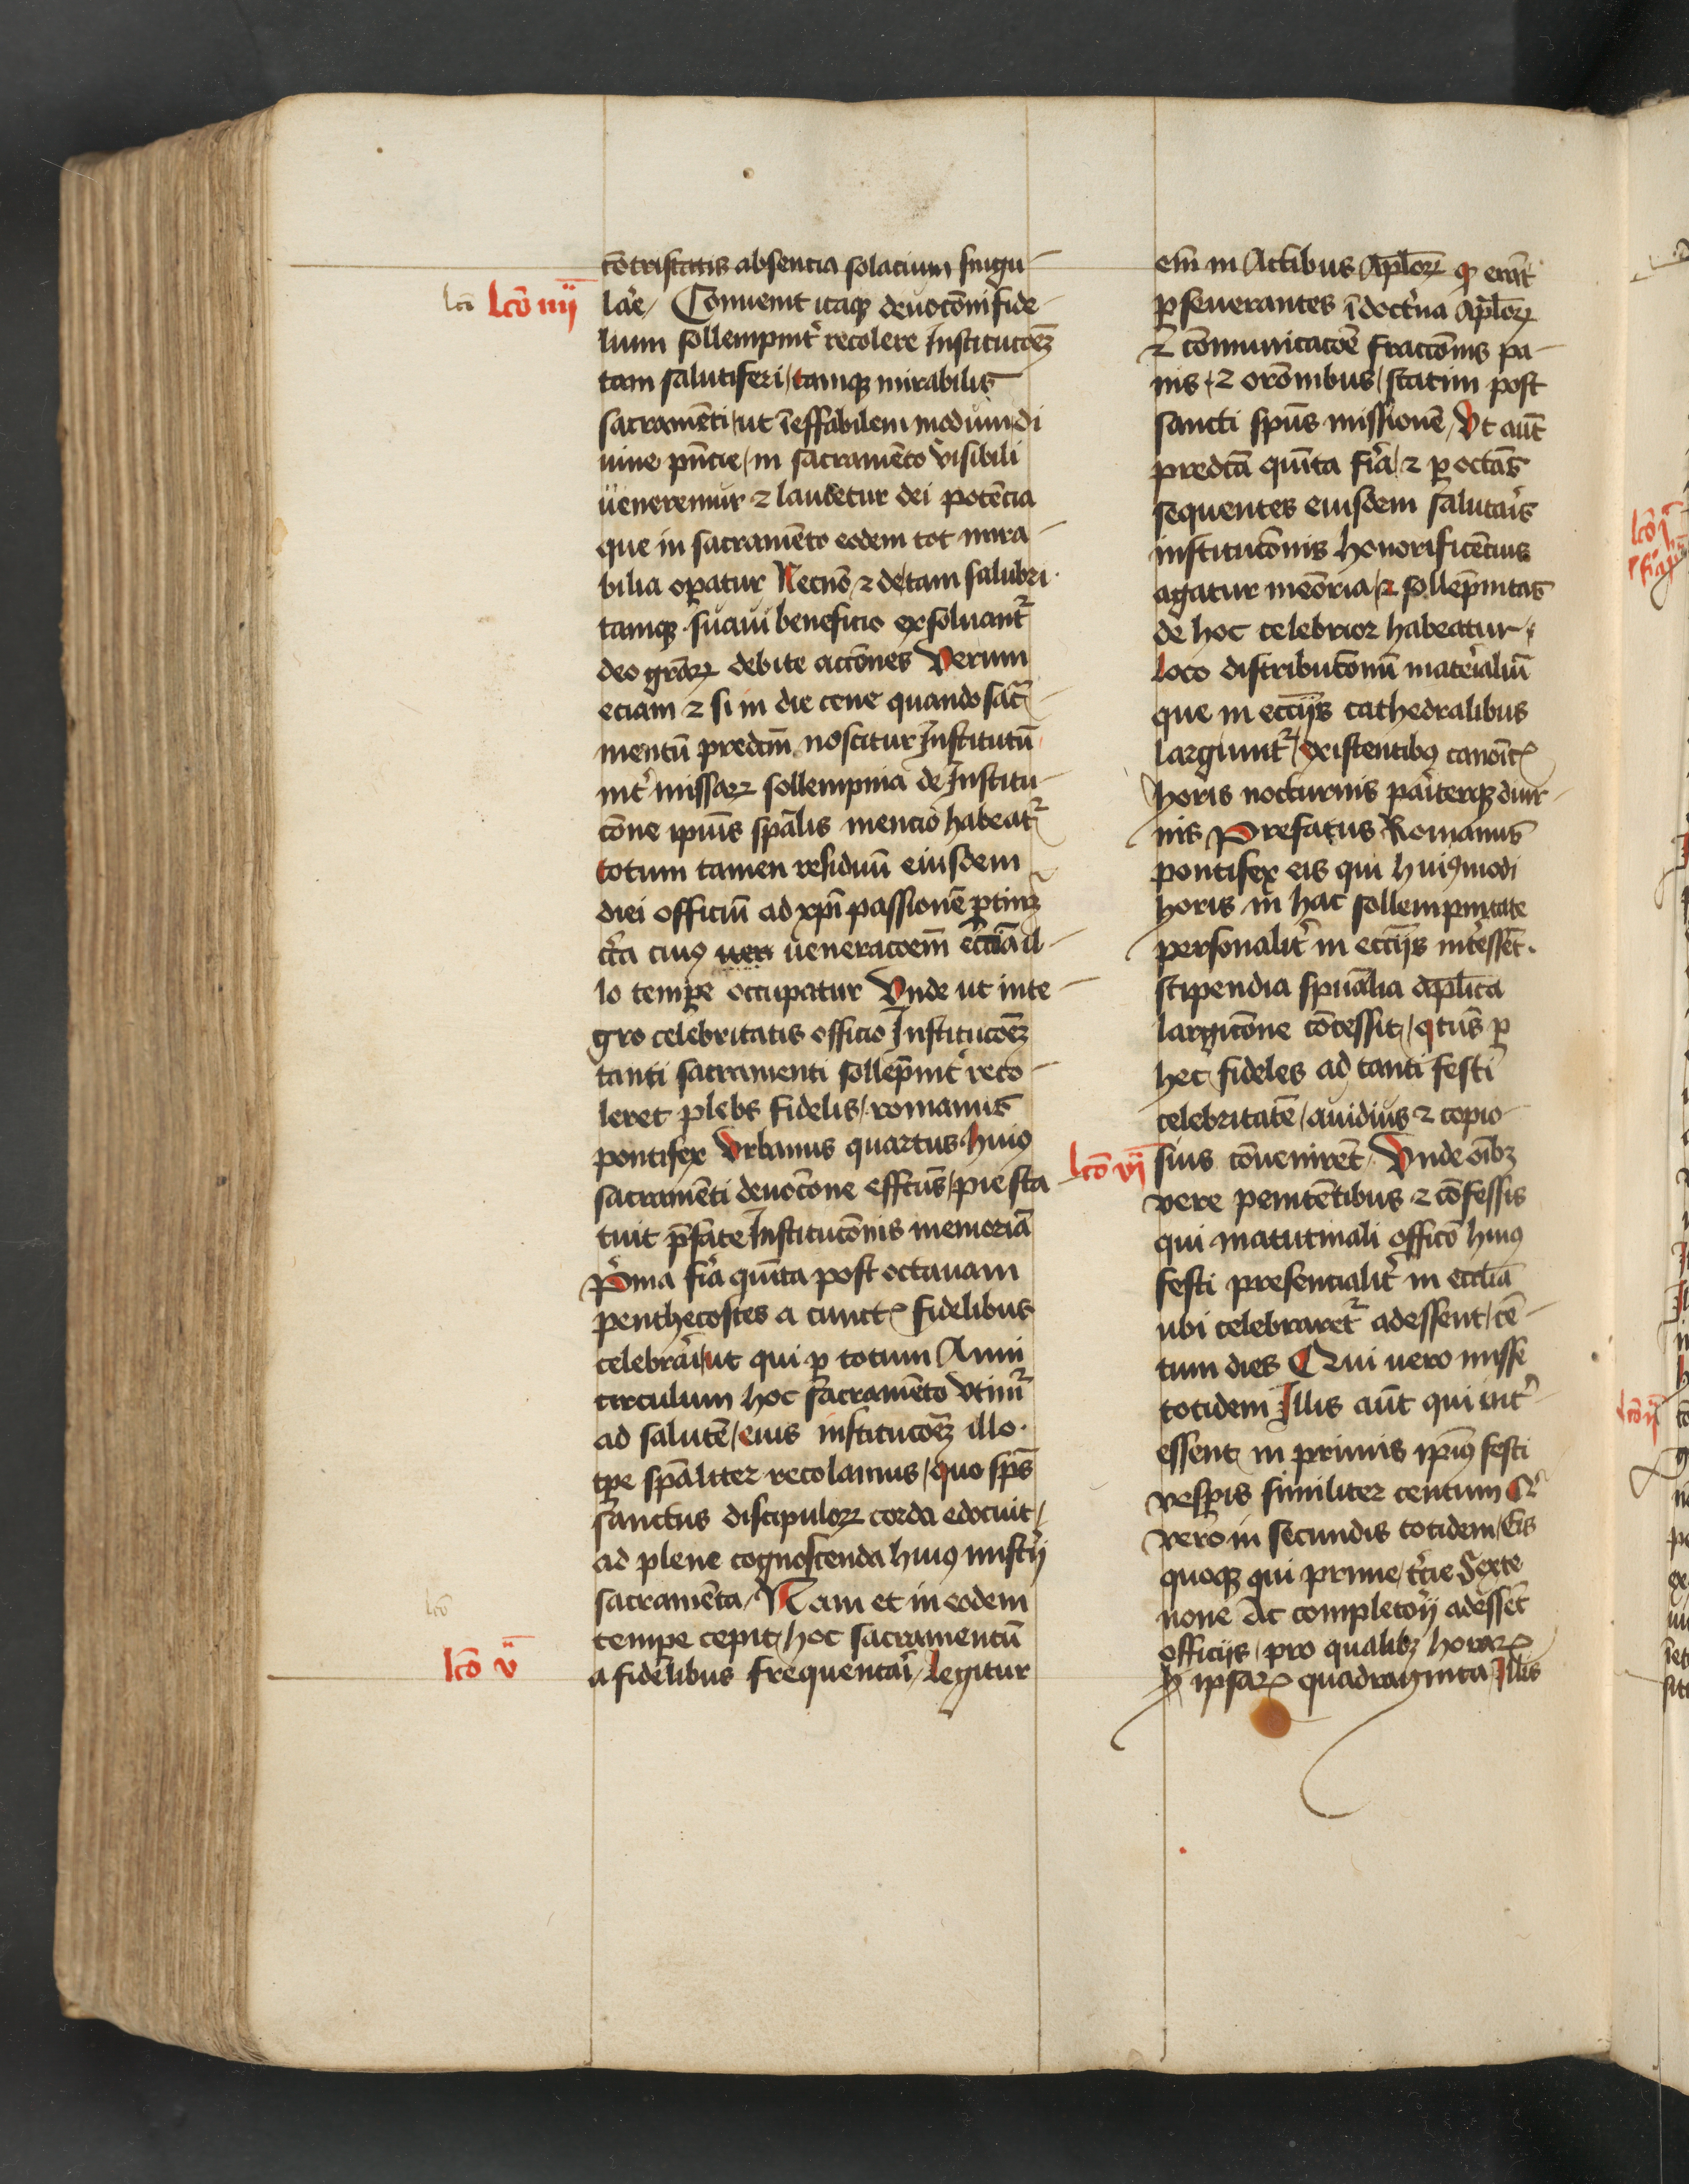 lcō
Lcō iiij
cōtristatis absencia solacium singu-
lār̄e / Conuenit itaqꝫ deuotōni fide-
lium sollempnit᷑ recolere Institucōeꝫ
tam salutiferi / tamqꝫ mirabilis
sacramēti / ut īeffabilem modum di
uine pn̄cie / in sacramēto visibili
ueneremur ⁊ laudetur dei potēcia
que in sacramēto eodem tot mira-
bilia oꝑatur Necnō ⁊ de tam salubri
tamqꝫ suaui beneficio exsoluant᷑
deo gr̄aꝝ debite accōnes Verum
eciam ⁊ si in die cene quando sac̄-
mentū predcm̄ noscitur Institutū
int᷑ missaꝝ sollempnia de Institu-
cōne ipiūs sp̄alis mencio habeat᷑
totum tamen residuū eiusdem
diei officiū ad xp̄i passionē ꝑtinꝫ
circa cuiꝰ uen ueneracoēm ecclīa il-
lo tempe occupatur Vnde ut inte-
gro celebritatis officio Institucōeꝫ
tanti sacramenti sollēpnit᷑ reco-
leret plebs fidelis / romanus
pontifex Vrbanus quartus huiꝰ
sacramēti deuocōne effctūs / pie sta
tuit p̄fate Institucōnis memoriā
Pͥma fiͬa quīta post octauam
penthecostes a cunctꝭ fidelibus
celebrāi / ut qui ꝑ totum Anni
circulum hoc sacramēto vtim᷑
ad salutē / eius institucōeꝫ illo
tp̄e sp̄aliter recolamus / quo sp̄s
sanctus discipuloꝝ corda edocuit /
ad plene cognoscenda huiꝰ mist͛ij
lcō
sacramēta / Nam et in eodem
tempe cepit / hoc sacramentū
Lcō v
a fidelibus frequentāi / Legitur
em̄ in Actibus Apl̄oꝝ qꝫ erāt
ꝑseuerantes ī doctͥna Apl̄oꝝ
⁊ cōmunicacōe fraccōnis pa-
nis / ⁊ orōnibus / statim post
sancti spūs missionē / Vt aūt
predcā quīta fiͬa / ⁊ ꝑ octās
sequentes eiusdem salutāis
institucōnis honorificēcius
agatur meōria / ⁊ sollēpnitas
de hoc celebrior habeatur /
Loco distribucōnū mat͛ialiū
que in ecc̄ijs cathedralibus
largiunt᷑ / existentibꝰ canoīcꝭ
horis nocturnis pāiterqꝫ diur-
nis Prefatus Romanus
pontifex eis qui huiꝰmodi
horis in hac sollempnitate
personalit᷑ in ecc̄ijs int͛essēt.
stipendia spūalia apl̄ica
largicōne cōcessit / qͣtūs ꝑ
hec fideles ad tanti festi
celebritatē / auidius ⁊ copio-
Lcō vi
sius cōuenirēt / Vnde oībꝫ
vere penitētibus ⁊ cōfessis
qui matutinali officō huiꝰ
festi presencialit᷑ in ecclīa
ubi celebraret᷑ adessent / cē-
tum dies Qui vero misse
totidem Illis aūt qui int᷑
essent in primis ip̄iꝰ festi
vesꝑis similiter centum Qͥ
vero in secundis totidem / Eis
quoqꝫ qui prime / t͛cie Sexte
none Ac completorij adessēt
officijs / pro qualibꝫ horaꝝ
ipsaꝝ quadraginta / Illis